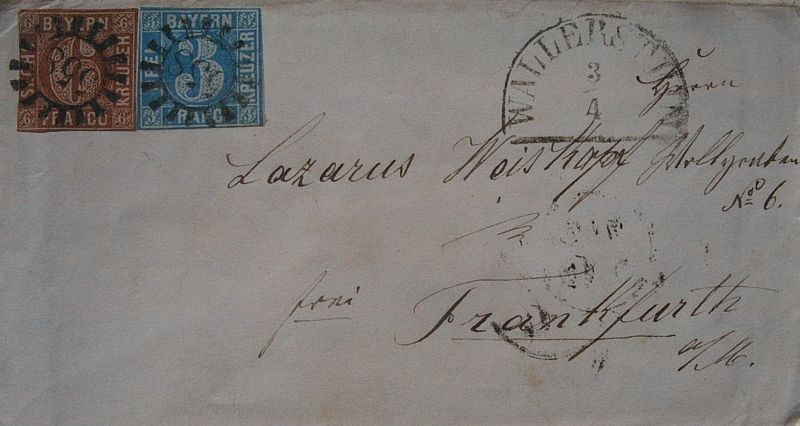 BAYERN
6
SECHS
KREUZER
FRANCO
BAYERN
3
DREI
KREUZER
FRANCO
WALLERSTEIN
3
4
Herrn
Lazarus Weiskopf Wollgraben
No 6.
frei
Frankfurth
a/M.